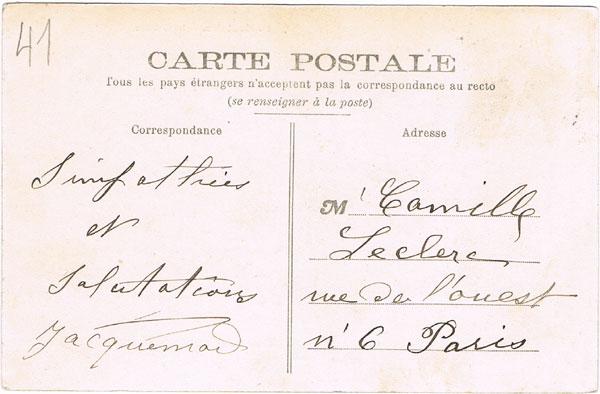 41
CARTE POSTALE
Tous les pays étrangers n'acceptent pas la correspondance au recto
(se renseigner à la poste)
Correspondance
Simpathies
et
Salutations
Jacquemard
Adresse
M' Camille
Leclerc
rue de l'ouest
n° 6 Paris